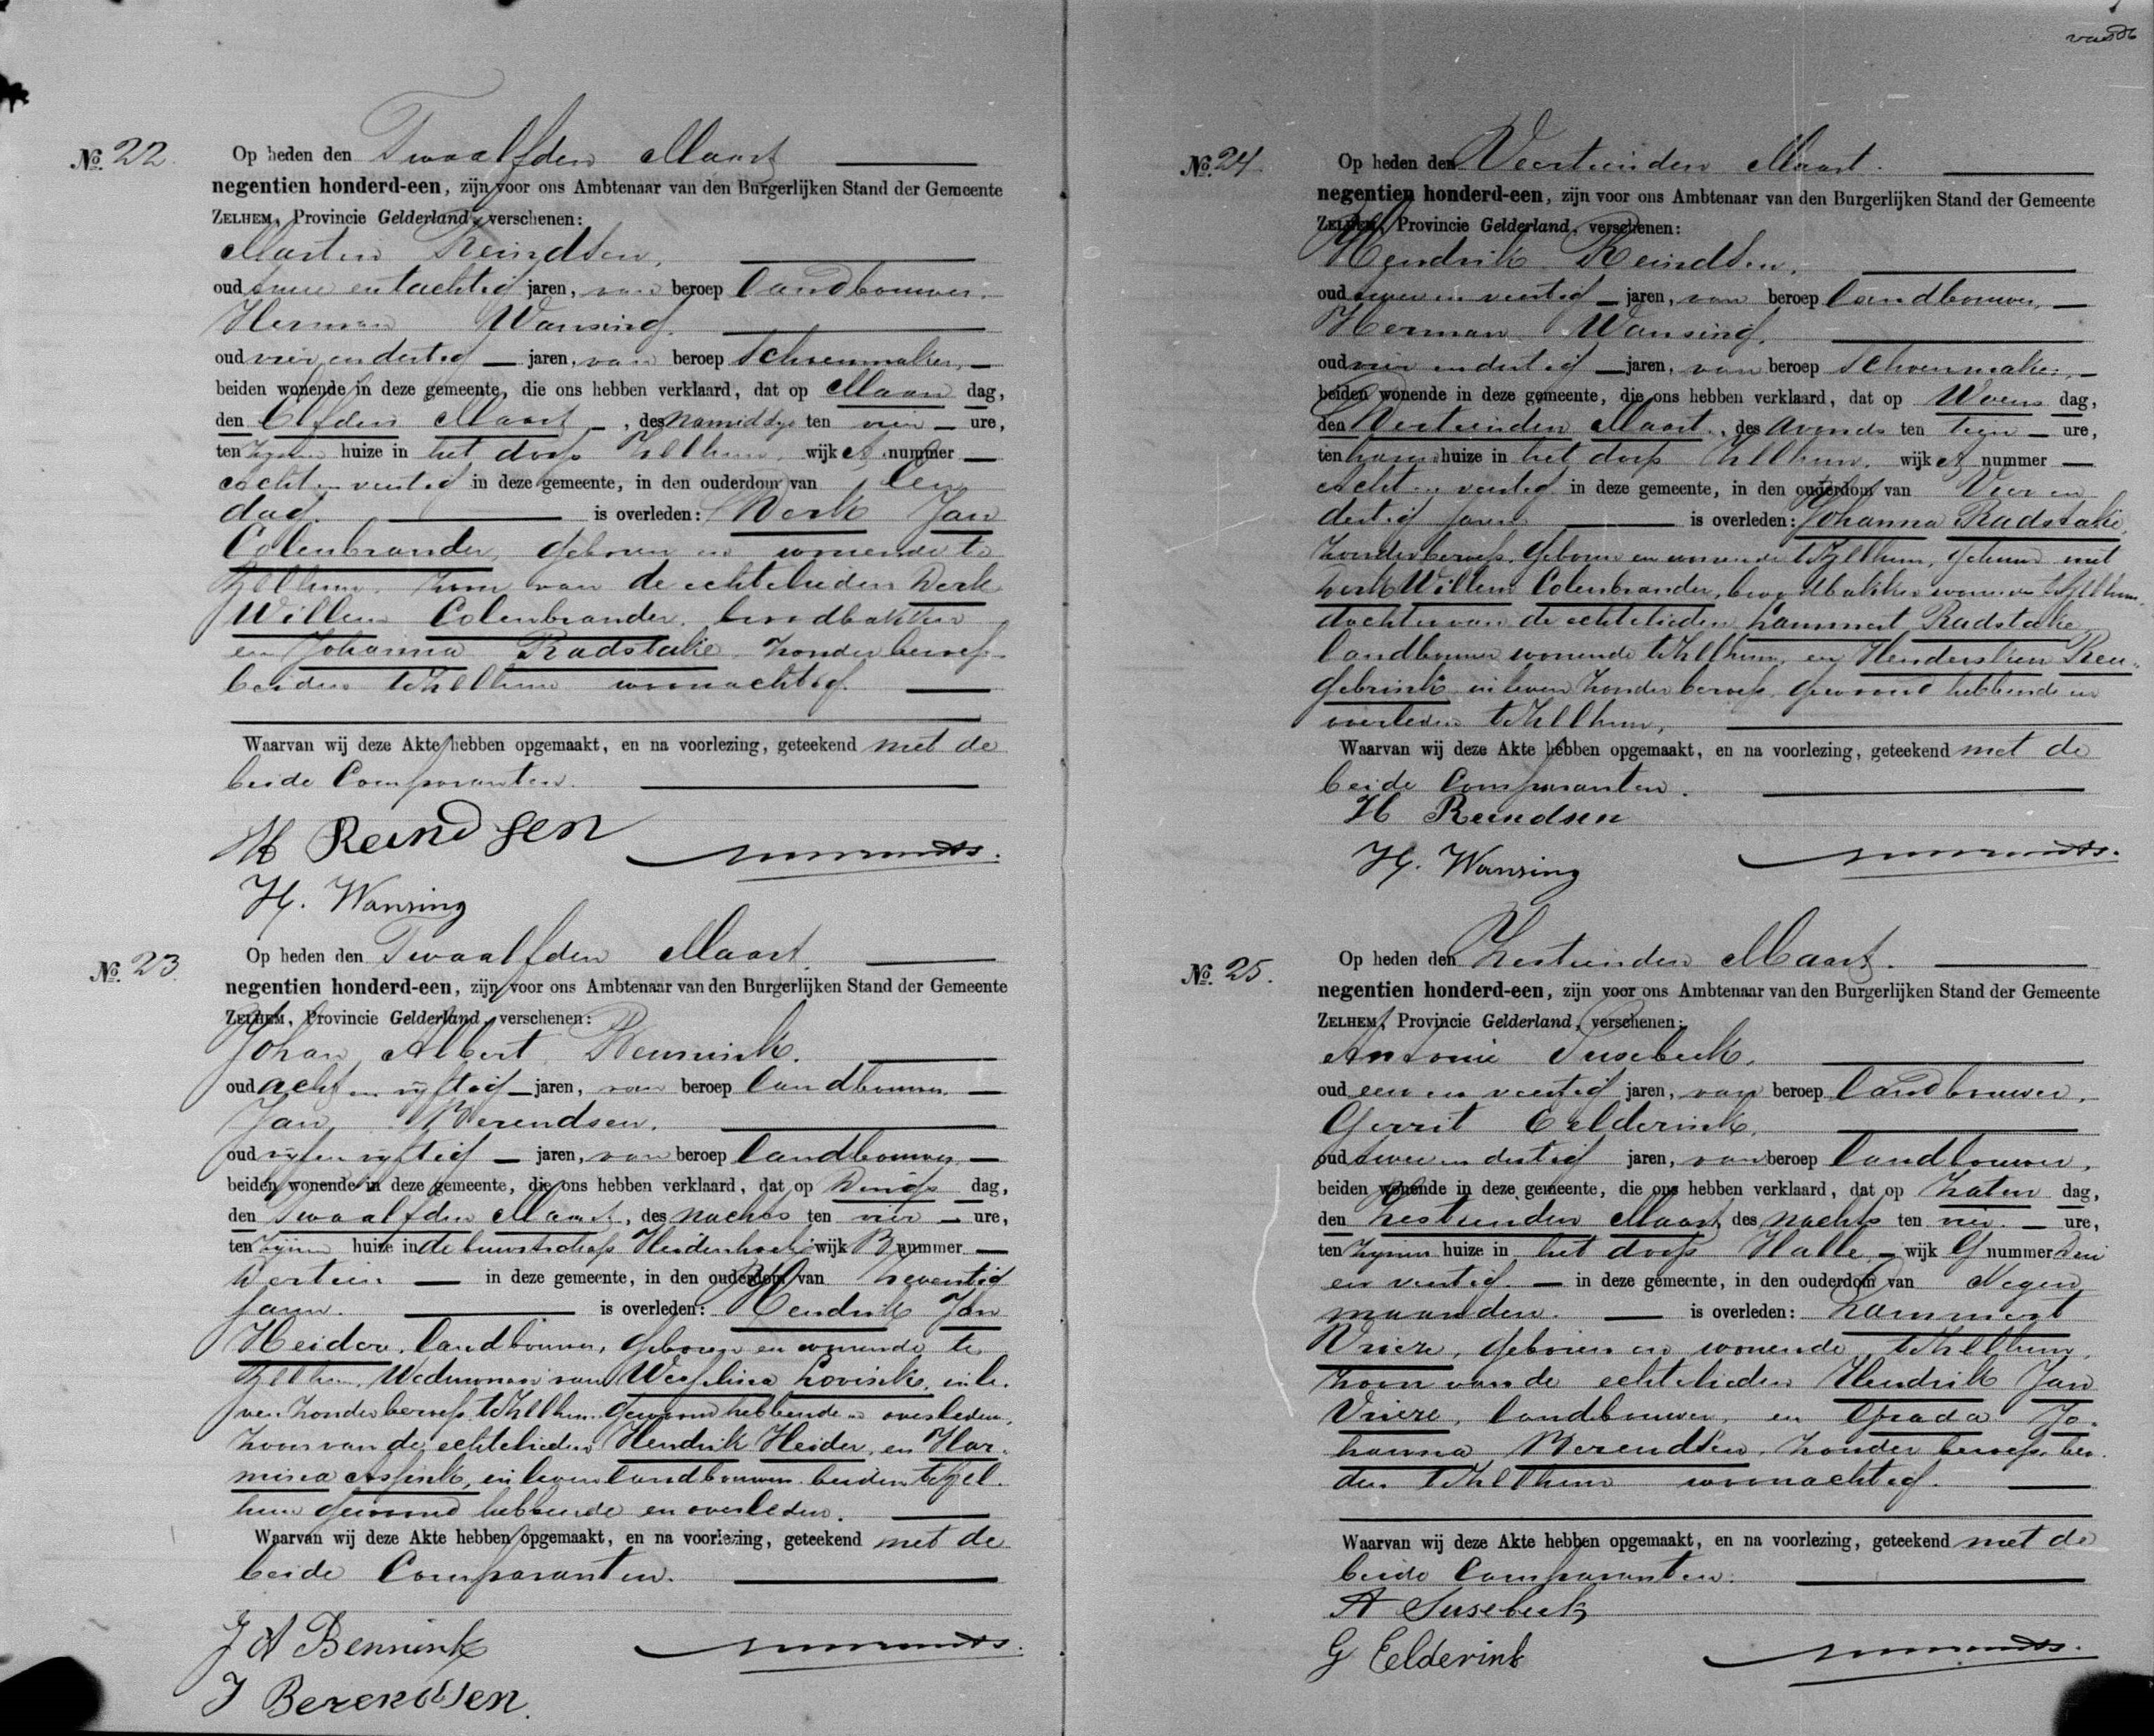 No. 22.
Op heden den Twaalfden Maart
negentien honderd-een, zijn voor ons Ambtenaar van den Burgerlijken Stand der Gemeente
ZELHEM, Provincie Gelderland, verschenen:
Marten Reindsen,
oud twee en tachtig jaren, van beroep landbouwer.
Herman Wansing.
oud vier en dertig jaren, van beroep Schoenmaker,
beiden wonende in deze gemeente, die ons hebben verklaard, dat op Maan dag,
den Elfden Maart, des namiddags ten vier ure,
ten zijnen huize in het dorp Zelhem, wijk A nummer
acht en veertig in deze gemeente, in den ouderdom van een
dag. is overleden: Derk Jan
Colenbrander, geboren en wonende te
Zelhem, zoon van de echtelieden Derk
Willem Colenbrander, broodbakker
en Johanna Radstake, zonder beroep,
beiden te Zelhem woonachtig.
Waarvan wij deze Akte hebben opgemaakt, en na voorlezing, geteekend met de
beide Comparanten.
M Reindsen
H. Wansing
No. 23.
Op heden den Twaalfden Maart.
negentien honderd-een, zijn voor ons Ambtenaar van den Burgerlijken Stand der Gemeente
ZELHEM, Provincie Gelderland, verschenen:
Johan Albert Bennink.
oud acht en vijftig jaren, van beroep landbouwer.
Jan Berendsen.
oud vijf en vijftig jaren, van beroep landbouwer,
beiden wonende in deze gemeente, die ons hebben verklaard, dat op Dings dag,
den Twaalfden Maart, des nachts ten vier ure,
ten zijnen huize in de buurtschap Heidenhoek, wijk B nummer
dertien in deze gemeente, in den ouderdom van zeventig
jaren. is overleden: Hendrik Jan
Heider, landbouwer, geboren en wonende te
Zelhem, Weduwnaar van Wesselina Lovink, in le-
ven zonder beroep, te Zelhem gewoond hebbende en overleden,
zoon van de echtelieden Hendrik Heider, en Har-
mina Assink, in leven landbouwers beiden te Zel-
hem gewoond hebbende en overleden.
Waarvan wij deze Akte hebben opgemaakt, en na voorlezing, geteekend met de
beide Comparanten.
J A Bennink
J Berendsen.
No. 24.
Op heden den Veertienden Maart.
negentien honderd-een, zijn voor ons Ambtenaar van den Burgerlijken Stand der Gemeente
ZELHEM, Provincie Gelderland, verschenen:
Hendrik Reindsen,
oud twee en veertig jaren, van beroep landbouwer,
Herman Wansing.
oud vier en dertig jaren, van beroep Schoenmaker,
beiden wonende in deze gemeente, die ons hebben verklaard, dat op Woens dag,
den Dertienden Maart, des avonds ten tien ure,
ten haren huize in het dorp Zelhem, wijk A nummer
acht en veertig in deze gemeente, in den ouderdom van Vier en
dertig jaren is overleden: Johanna Radstake,
zonder beroep, geboren en wonende te Zelhem, gehuwd met
Derk Willem Colenbrander, broodbakker wonende te Zelhem,
dochter van de echtelieden Lammert Radstake
landbouwer wonende te Zelhem, en Hendersken Reu-
gebrink in leven zonder beroep, gewoond hebbende en
overleden te Zelhem,
Waarvan wij deze Akte hebben opgemaakt, en na voorlezing, geteekend met de
beide Comparanten.
H Reindsen
H. Wansing
No. 25.
Op heden den Zestienden Maart.
negentien honderd-een, zijn voor ons Ambtenaar van den Burgerlijken Stand der Gemeente
ZELHEM, Provincie Gelderland, verschenen:
Antonie Susebeek,
oud een en veertig jaren, van beroep landbouwer,
Gerrit Eelderink,
oud twee en dertig jaren, van beroep landbouwer,
beiden wonende in deze gemeente, die ons hebben verklaard, dat op Zater dag,
den Zestienden Maart, des nachts ten vier ure,
ten zijnen huize in het dorp Halle, wijk G nummer Drie
en veertig. in deze gemeente, in den ouderdom van Negen
maanden. is overleden: Lammert
Vrieze, geboren en wonende te Zelhem,
zoon van de echtelieden Hendrik Jan
Vrieze, landbouwer, en Grada Jo-
hanna Berendsen, zonder beroep, bei-
den te Zelhem woonachtig.
Waarvan wij deze Akte hebben opgemaakt, en na voorlezing, geteekend met de
beide Comparanten.
A Susebeek
G Eelderink